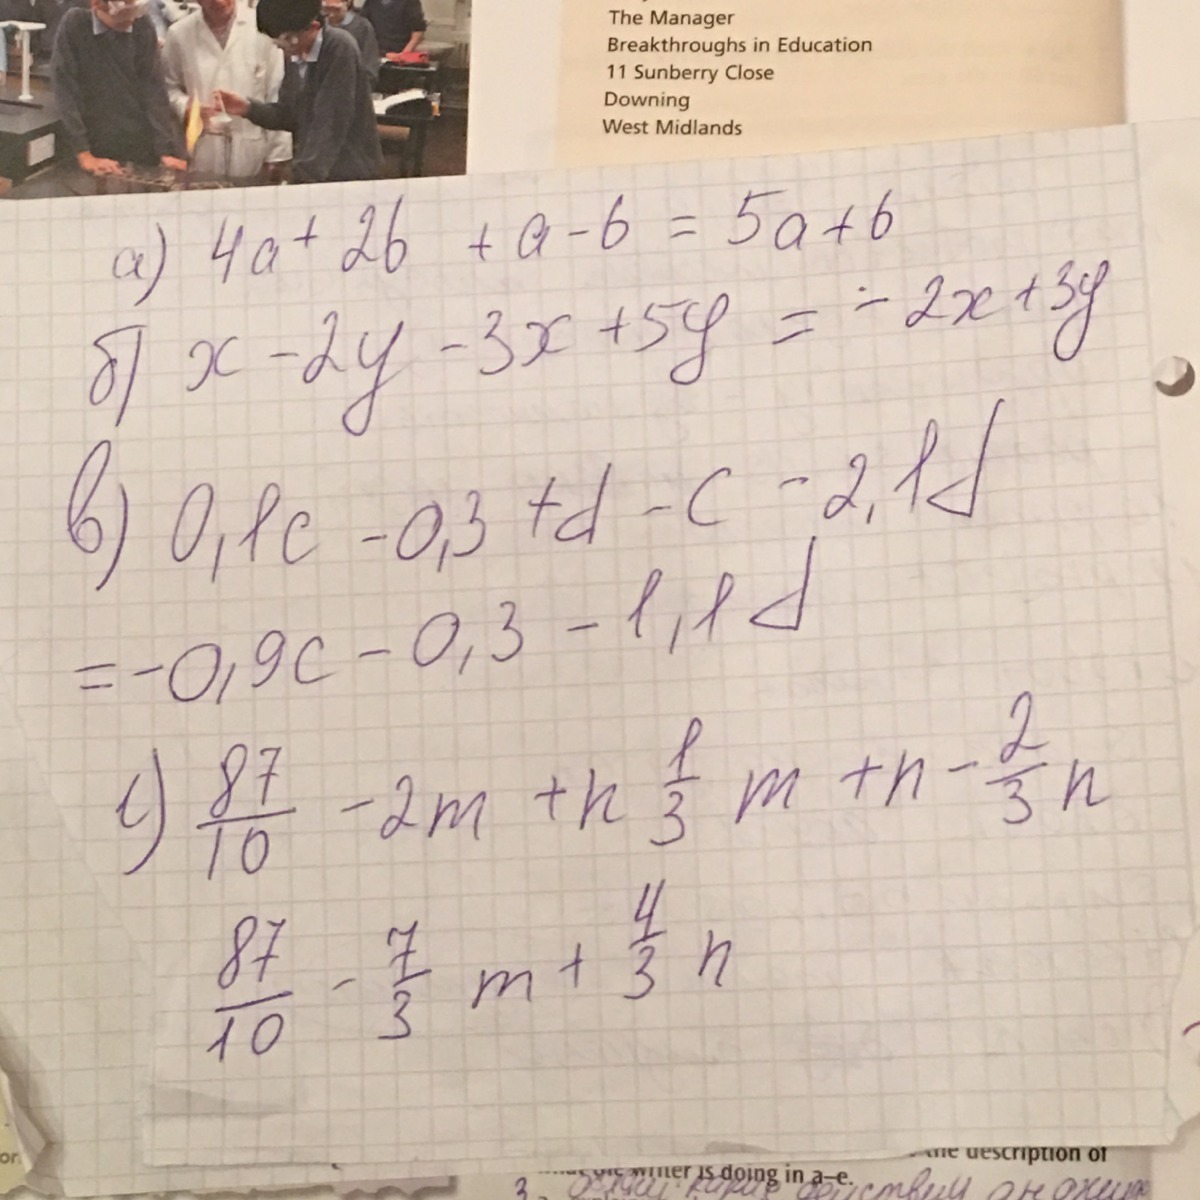 The Manager
Breakthroughs in Education
11 Sunberry Close
Downing
West Midlands
а) 4a + 2b + a - b = 5a + b
б) x - 2y - 3x + 5y = - 2x + 3y
в) 0,1c - 0,3 + d - c - 2,1d
= -0,9c - 0,3 - 1,1d
г) 87/10 - 2m + n 1/3 m + n - 2/3 n
87/10 - 7/3 m + 4/3 n
the description of
writer is doing in a–e.
3.